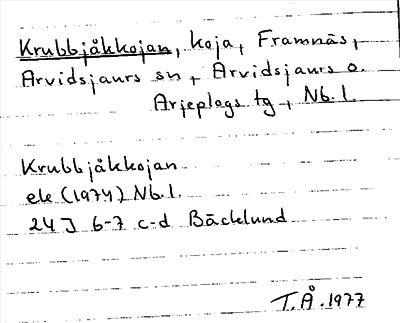 Krubbjåkkojan, koja, Framnäs,
Arvidsjaurs sn, Arvidsjaurs o.
Arjeplogs tg, Nb. l.
Krubbjåkkojan
ek (1974) Nb. l.
24J 6-7 c-d Bäcklund
T.Å. 1977